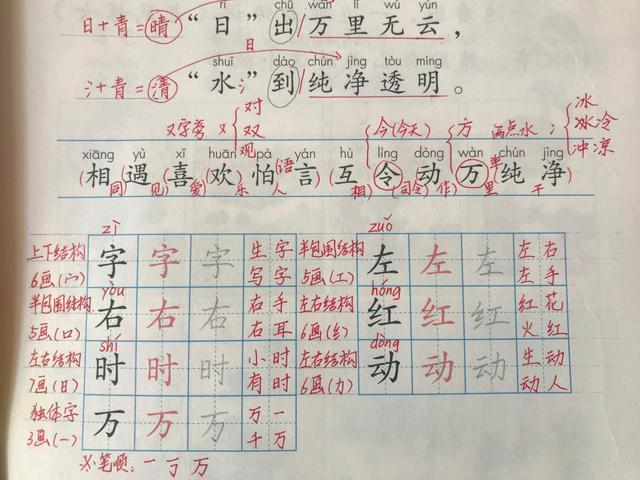 rì chū wàn lǐ wú yún
日+青=晴 “日” 出 万 里 无 云，
日
shuǐ dào chún jìng tòu míng
氵+青=清 “水” 到 纯 净 透 明 。
氵
对 冰
又字旁 又 双 今(今天) 方 两点水 冫 冰冷
观 冲凉
xiāng yù xǐ huān pà yán hù lìng dòng wàn chún jìng
相 遇 喜 欢 怕 言 互 令 动 万 纯 净
(同) (见) (爱) 乐 (语) 人 (相) (司令) (作) 里 (单) 干
zì zuǒ
上下结构 字 字 字 生字 半包围结构 左 左 左 左右
6画(宀) 写字 5画(工) 左手
yòu hóng
半包围结构 右 右 右 右手 左右结构 红 红 红 红花
5画(口) 右耳 6画(纟) 火红
shí dòng
左右结构 时 时 时 小时 左右结构 动 动 动 生动
7画(日) 有时 6画(力) 动人
独体字 万 万 万 万一
3画(一) 千万
笔顺：一 丁 万